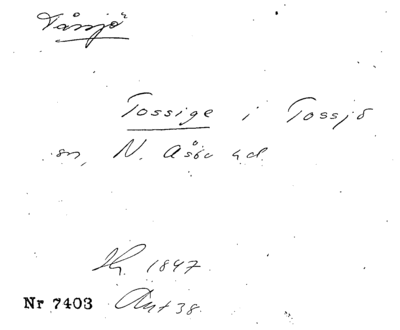 Tåssjö
Tossige i Tossjö
sn, N. Åsbo hd
1847
Nr 7403 Ant 38.